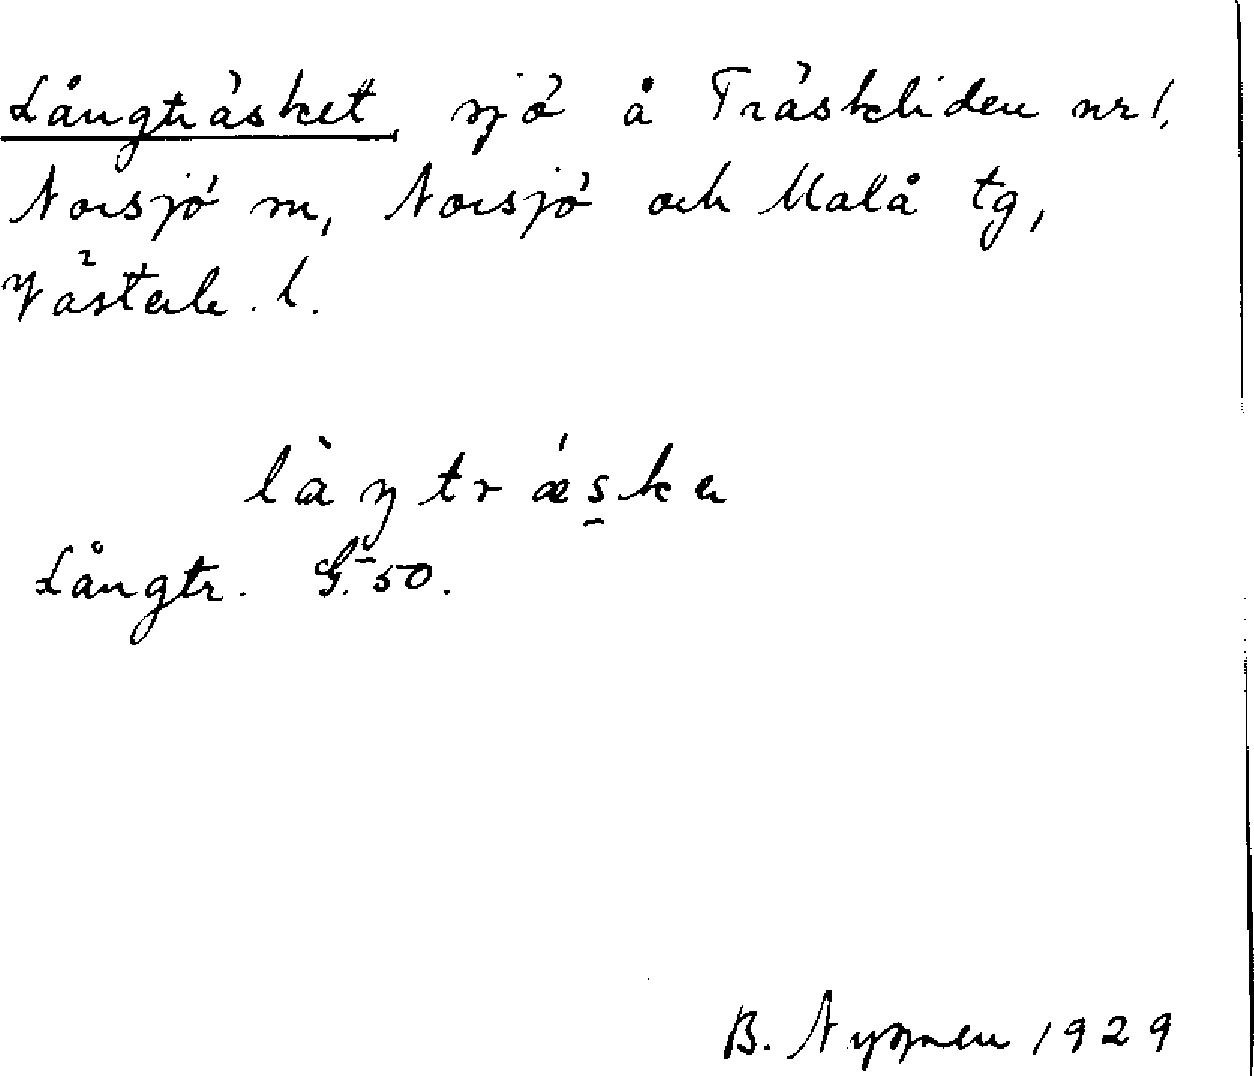 Långträsket, sjö å Träskliden nr 1,
Norsjö sn, Norsjö och Malå tg,
Västerb. l.
làŋtræ´ska
Långtr. G. 50.
B. Nyman 1929